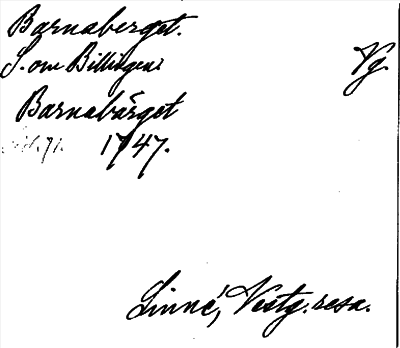 Barnaberget.
S. om Billingen. Vg.
Barnabärget
1747.
Linné, Vestg. resa.